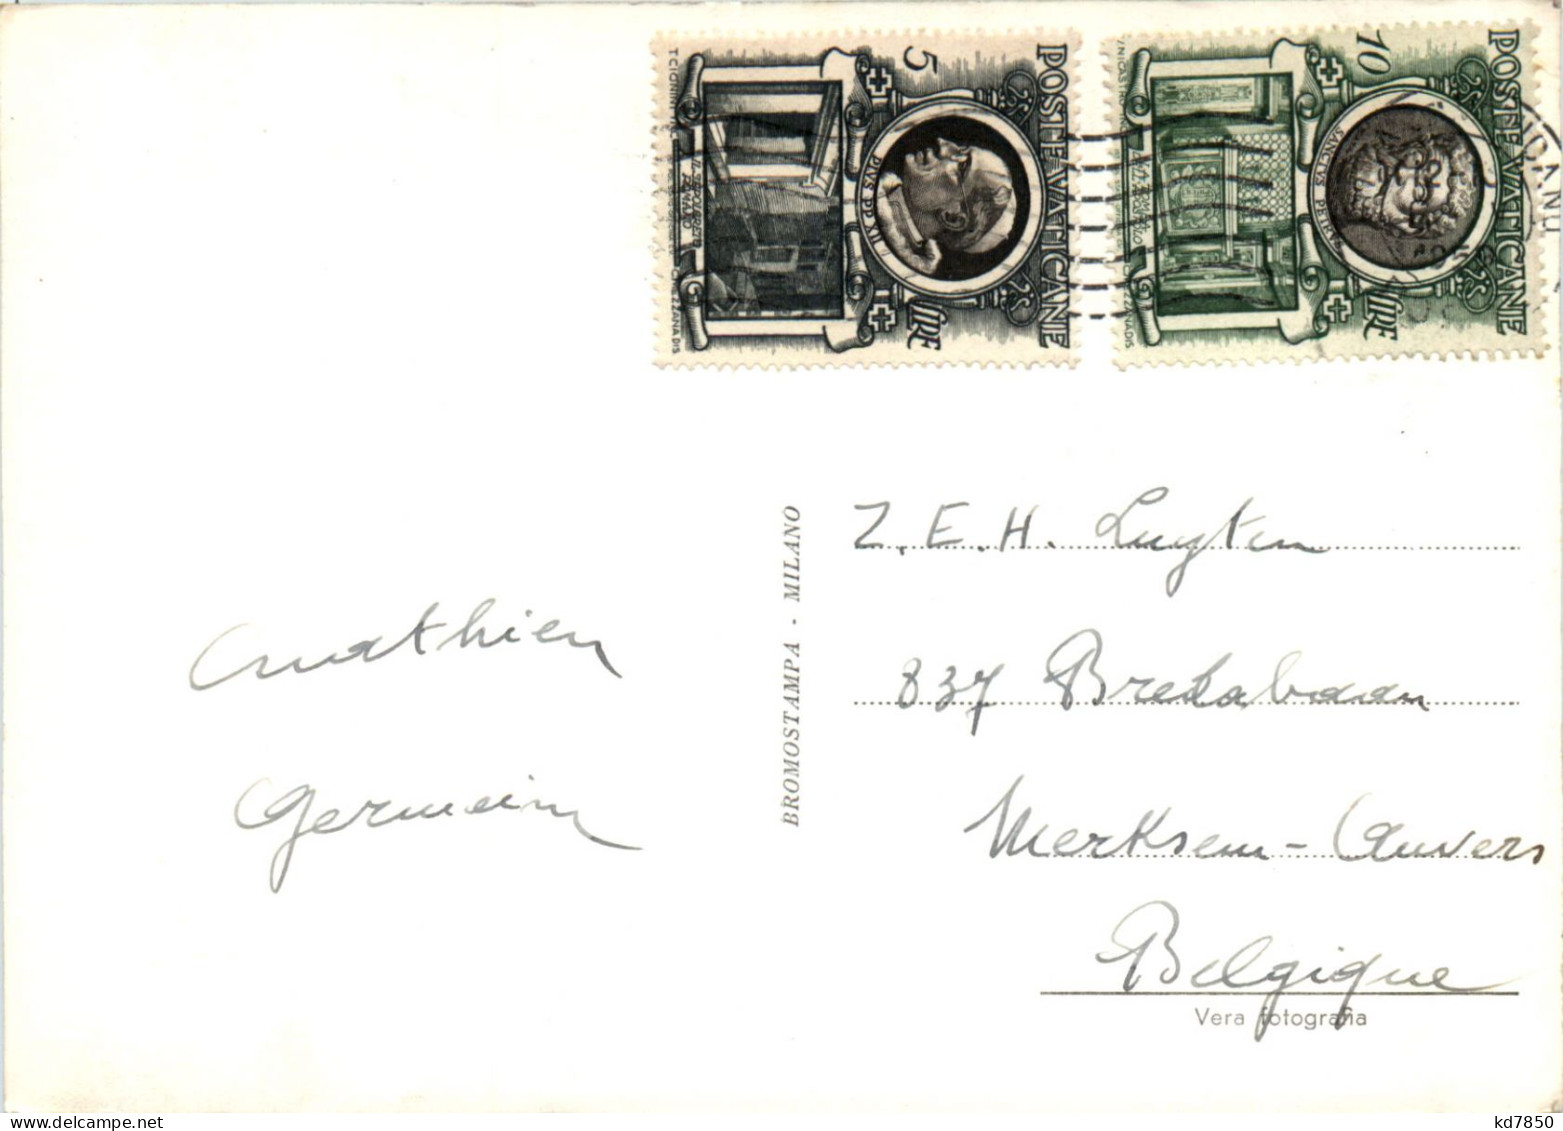 POSTE VATICANE
5
LIRE
PIVS PP. XII
POSTE VATICANE
10
LIRE
SANCTVS PETRVS
BROMOSTAMPA - MILANO
Z.E.H. Luyten
837 Bredabaan
Merksem-Anvers
Belgique
Vera fotografia
Mathieu
Germein
kd7850